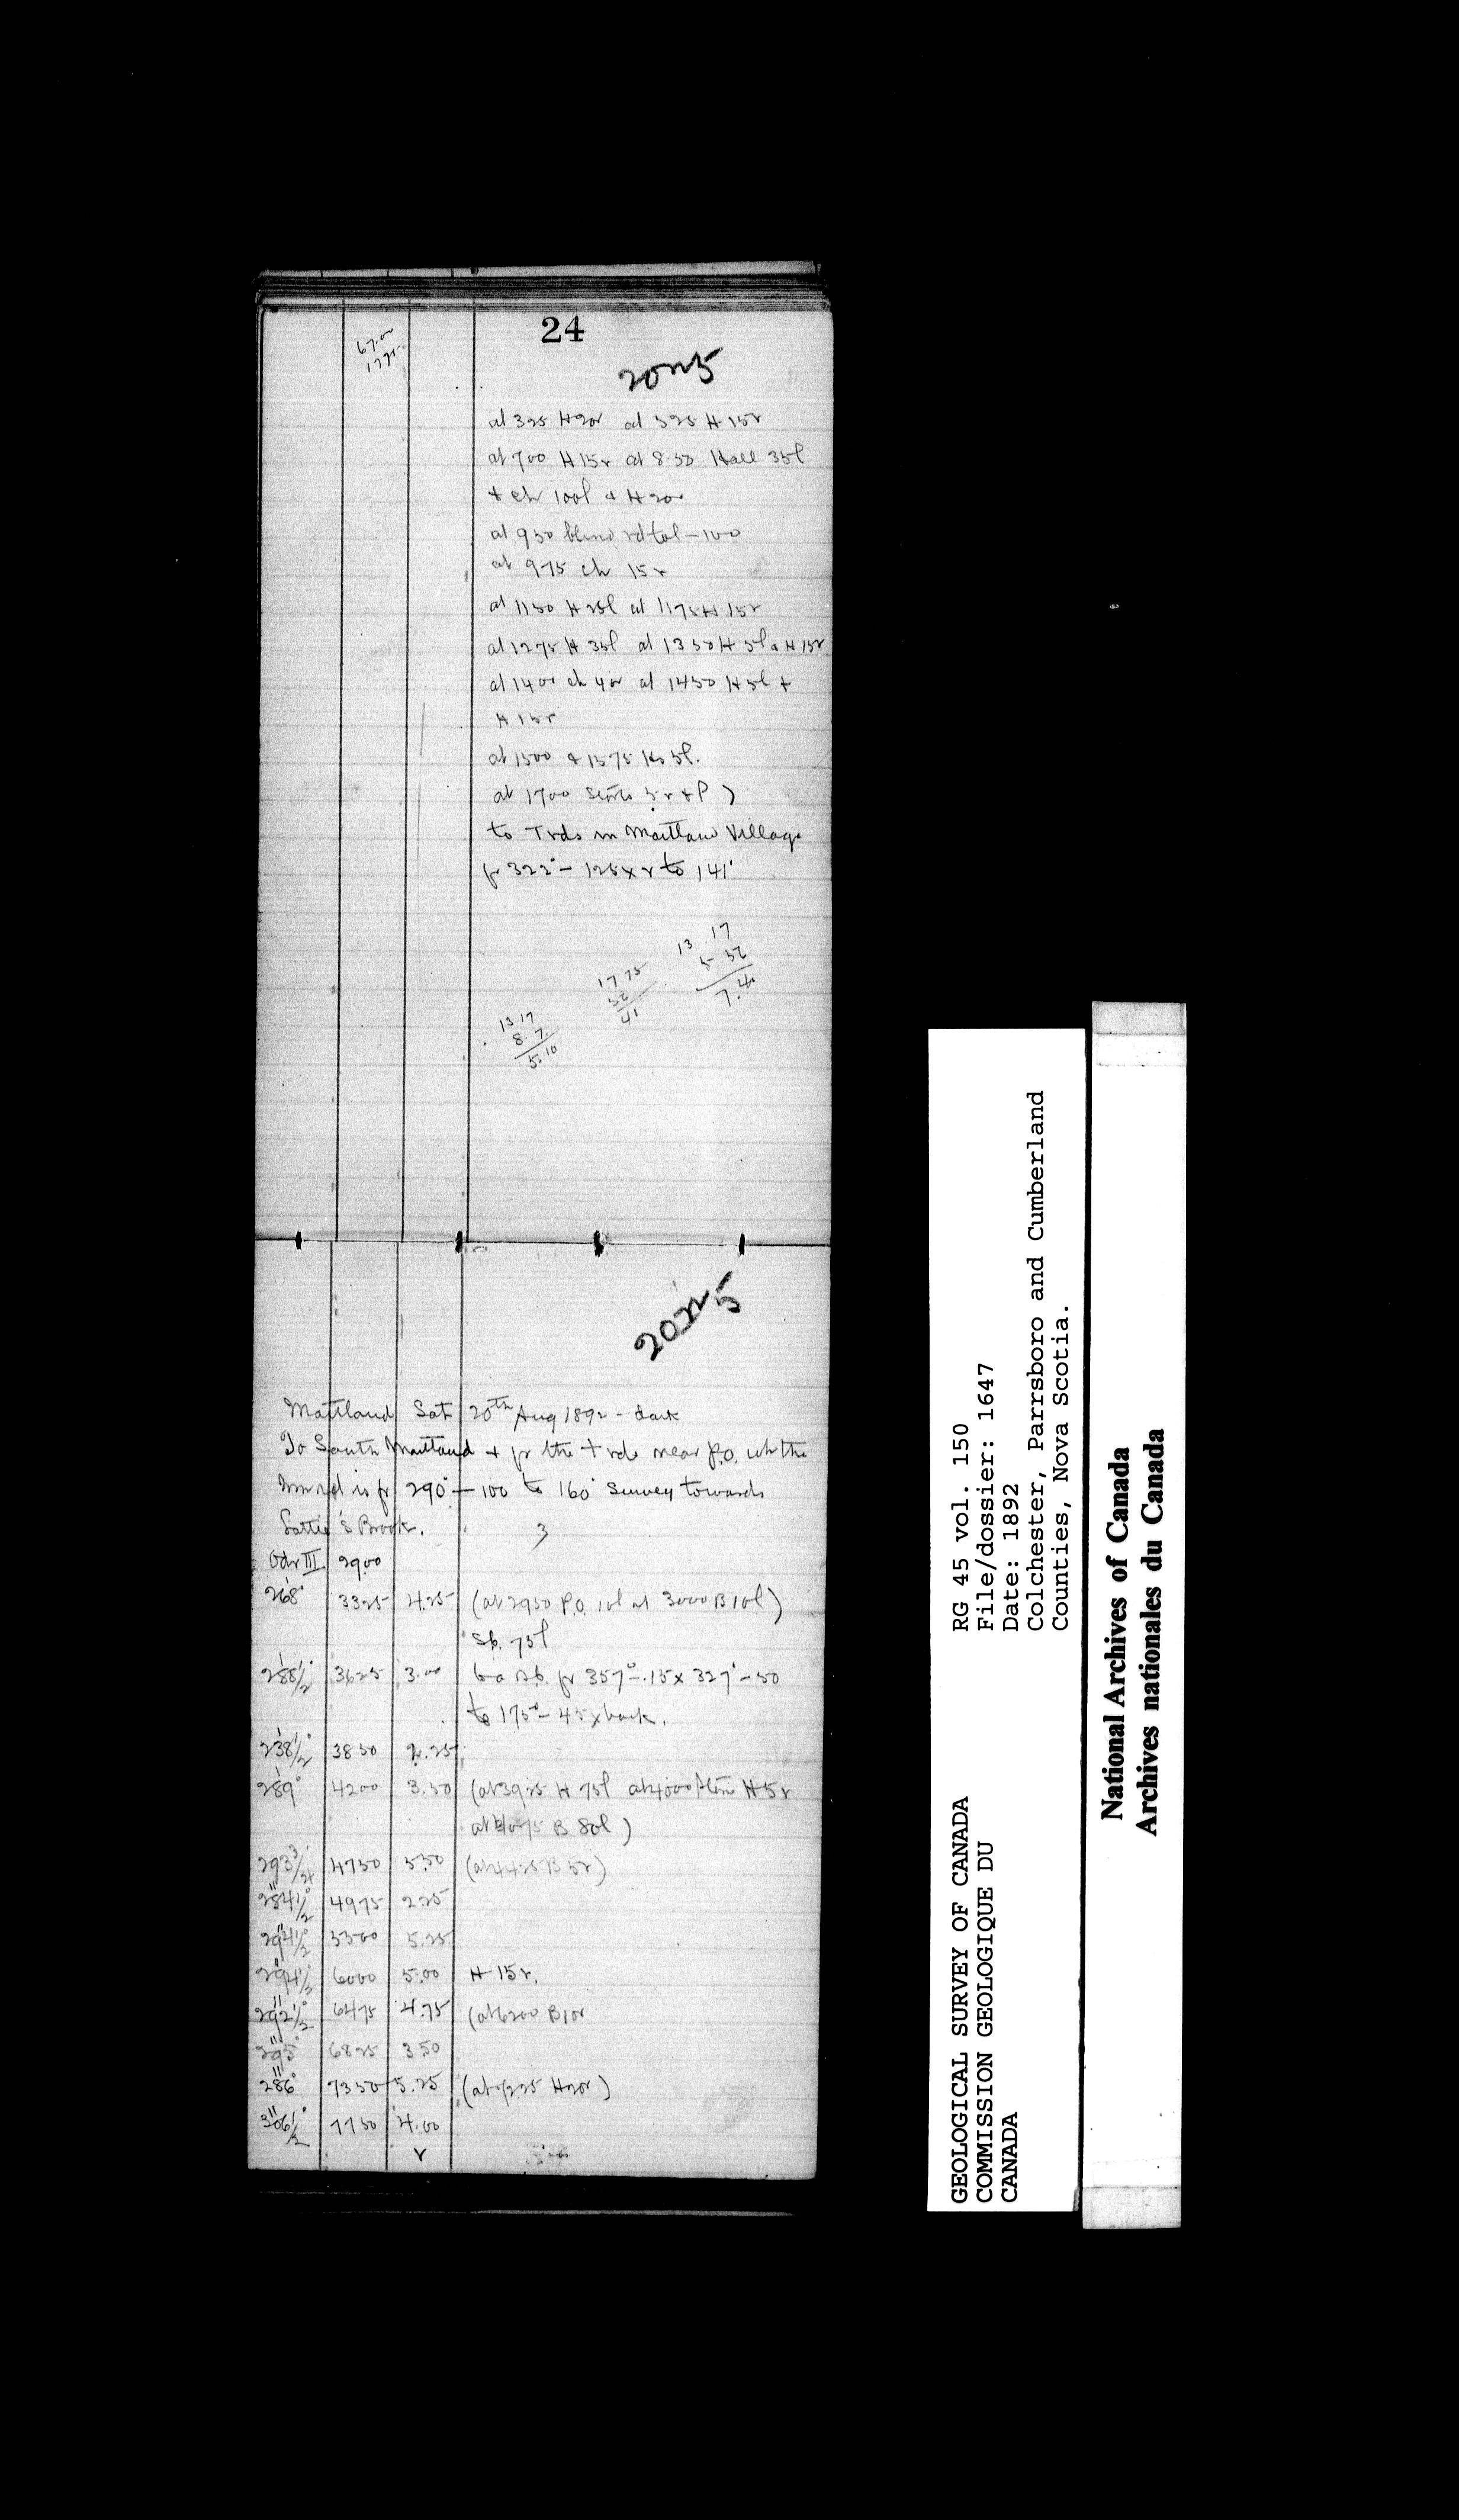 24
67.00
1775
2025
at 325 H 20r at 525 H 15r
at 700 H 15r at 8.50 Hall 35l
+ ch 100l + H 20r
at 950 blind rd to l – 100
at 975 ch 15r
at 1150 H 25l at 1175 H 15r
at 1275 H 35l at 1350 H 5l + H 15r
at 1400 ch 40r at 1450 H 5l +
H 15r
at 1500 + 1575 Hs 5l.
at 1700 stores 5 r + l )
to T rds in Maitland Village
fr 322° – 125 x r to 141°
13 17
5 52
7.4
17 75
52
41
13 17
8. 7.
5.10
2025
Maitland Sat 20th Aug 1892 – dark
To South Maitland + fr the T rds near P.O. wh the
rd is fr 290° – 100 to 160° Survey towards
's Brook.
3
Odr III 2900
268° 3325 4.25 (at 2950 P.O. 10l at 3000 B 10l)
Sb. 75l
288 1/2° 3625 3.00 to a Rb. fr 357° – 15 x 327° – 50
to 175° – 45 x back.
238 1/2° 3850 2.25
289° 4200 3.50 (at 3925 H 75l at 4000 H 5r
at 4075 B 80l )
293 3/4 4750 5.50 (at 4425 B 5r)
284 1/2° 4975 2.25
294 1/2° 5500 5.25
294 1/2 6000 5.00 H 15r.
292 1/2° 6475 4.75 (at 6200 B 10r
295° 6825 3.50
286° 7350 5.25 (at 7225 H 20r )
306 1/2° 7750 4.00
r
GEOLOGICAL SURVEY OF CANADA
COMMISSION GEOLOGIQUE DU
CANADA
RG 45 vol. 150
File/dossier: 1647
Date: 1892
Colchester, Parrsboro and Cumberland
Counties, Nova Scotia.
National Archives of Canada
Archives nationales du Canada